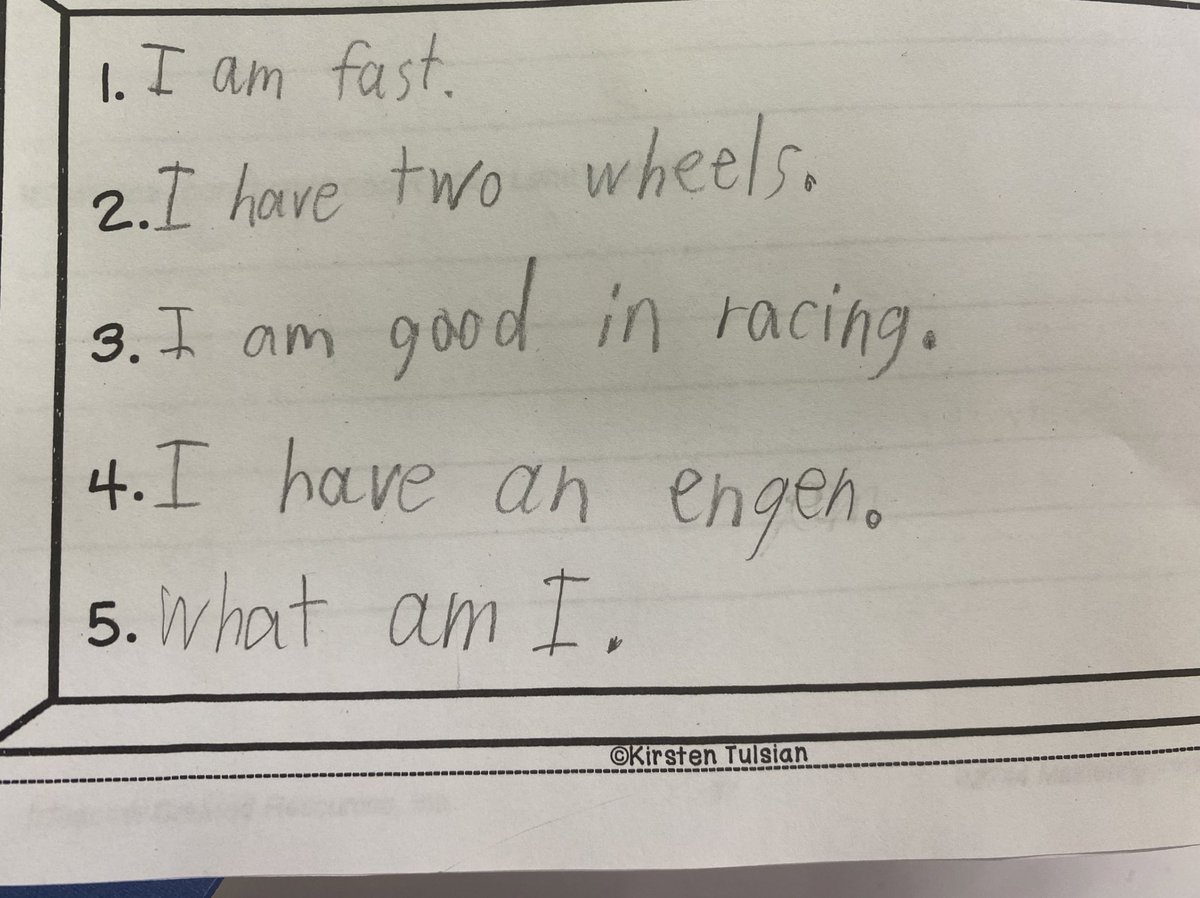 1. I am fast.
2. I have two wheels.
3. I am good in racing.
4. I have an engen.
5. What am I.
©Kirsten Tulsian